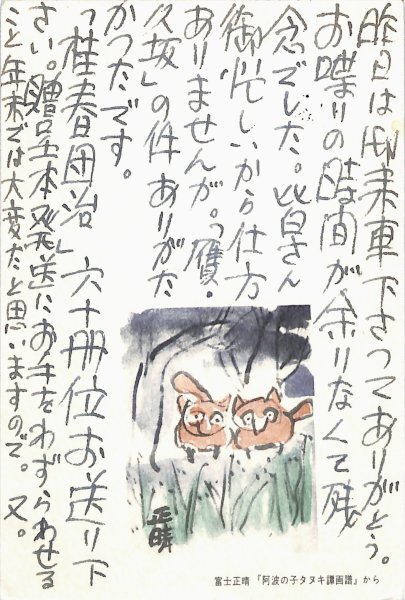 昨日は御来車下さつてありがとう。
お喋りの時間が余りなくて残
念でした。皆さん
御忙しいから仕方
ありませんが。「贋・
久坂」の件ありがた
かつたです。
「桂春団治」六十冊位お送り下
さい。贈呈本発送にお手をわずらわせる
こと年末では大変だと思いますので。又。
正晴
富士正晴『阿波の子タヌキ譚画譜』から